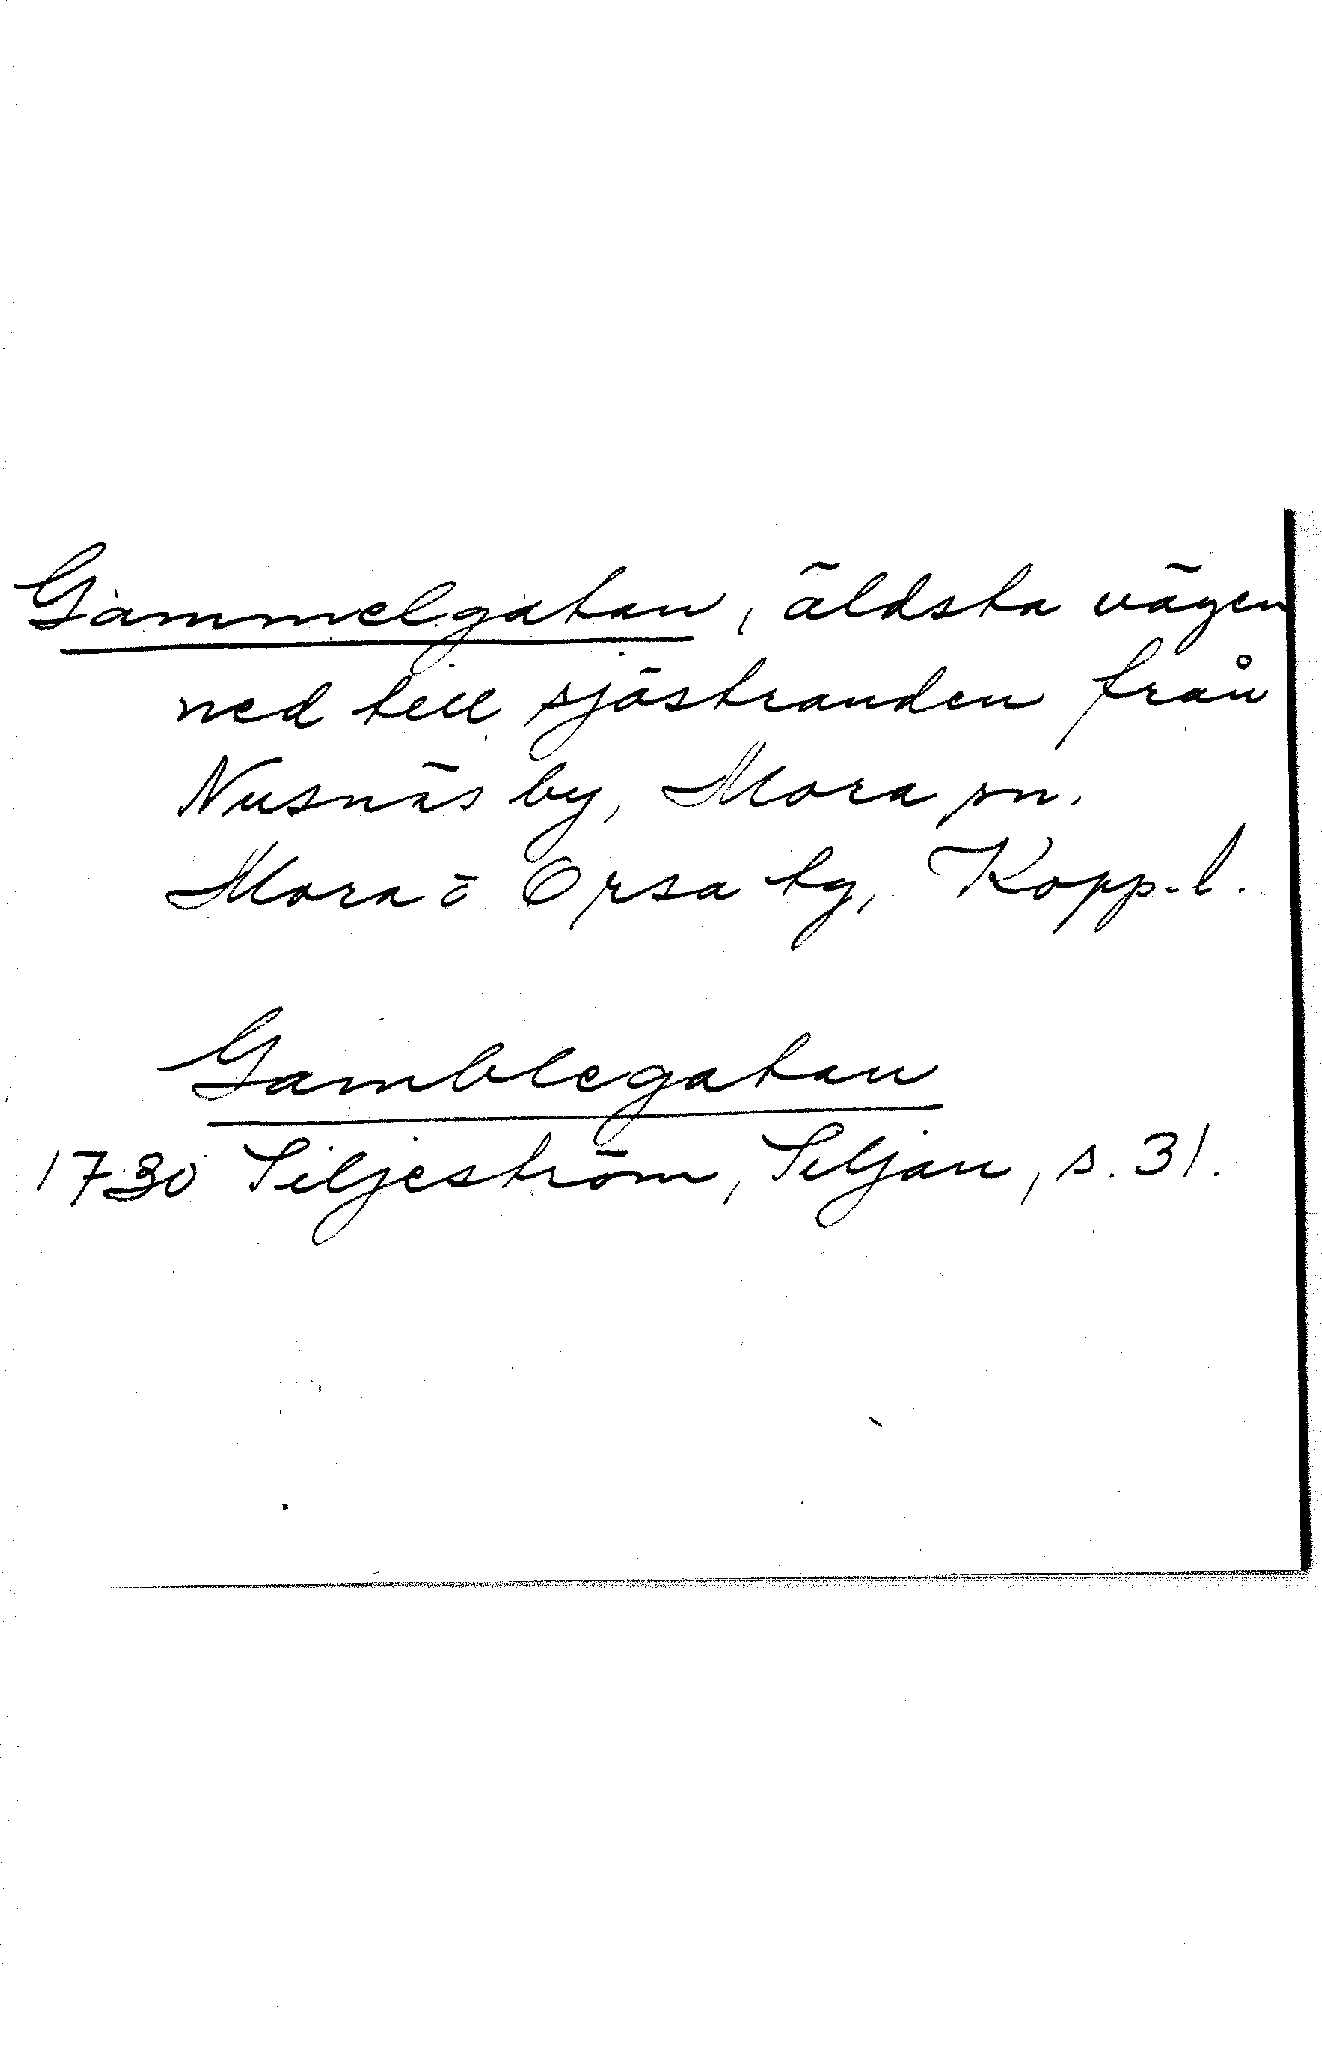 Gammelgatan, äldsta vägen
ned till sjöstranden från
Nusnäs by, Mora sn.
Mora o Orsa tg, Kopp. l.
Gamblegatan
1730 Siljeström, Siljan, s. 31.